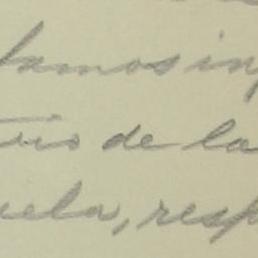 lamos in
rio de la
uela, resp